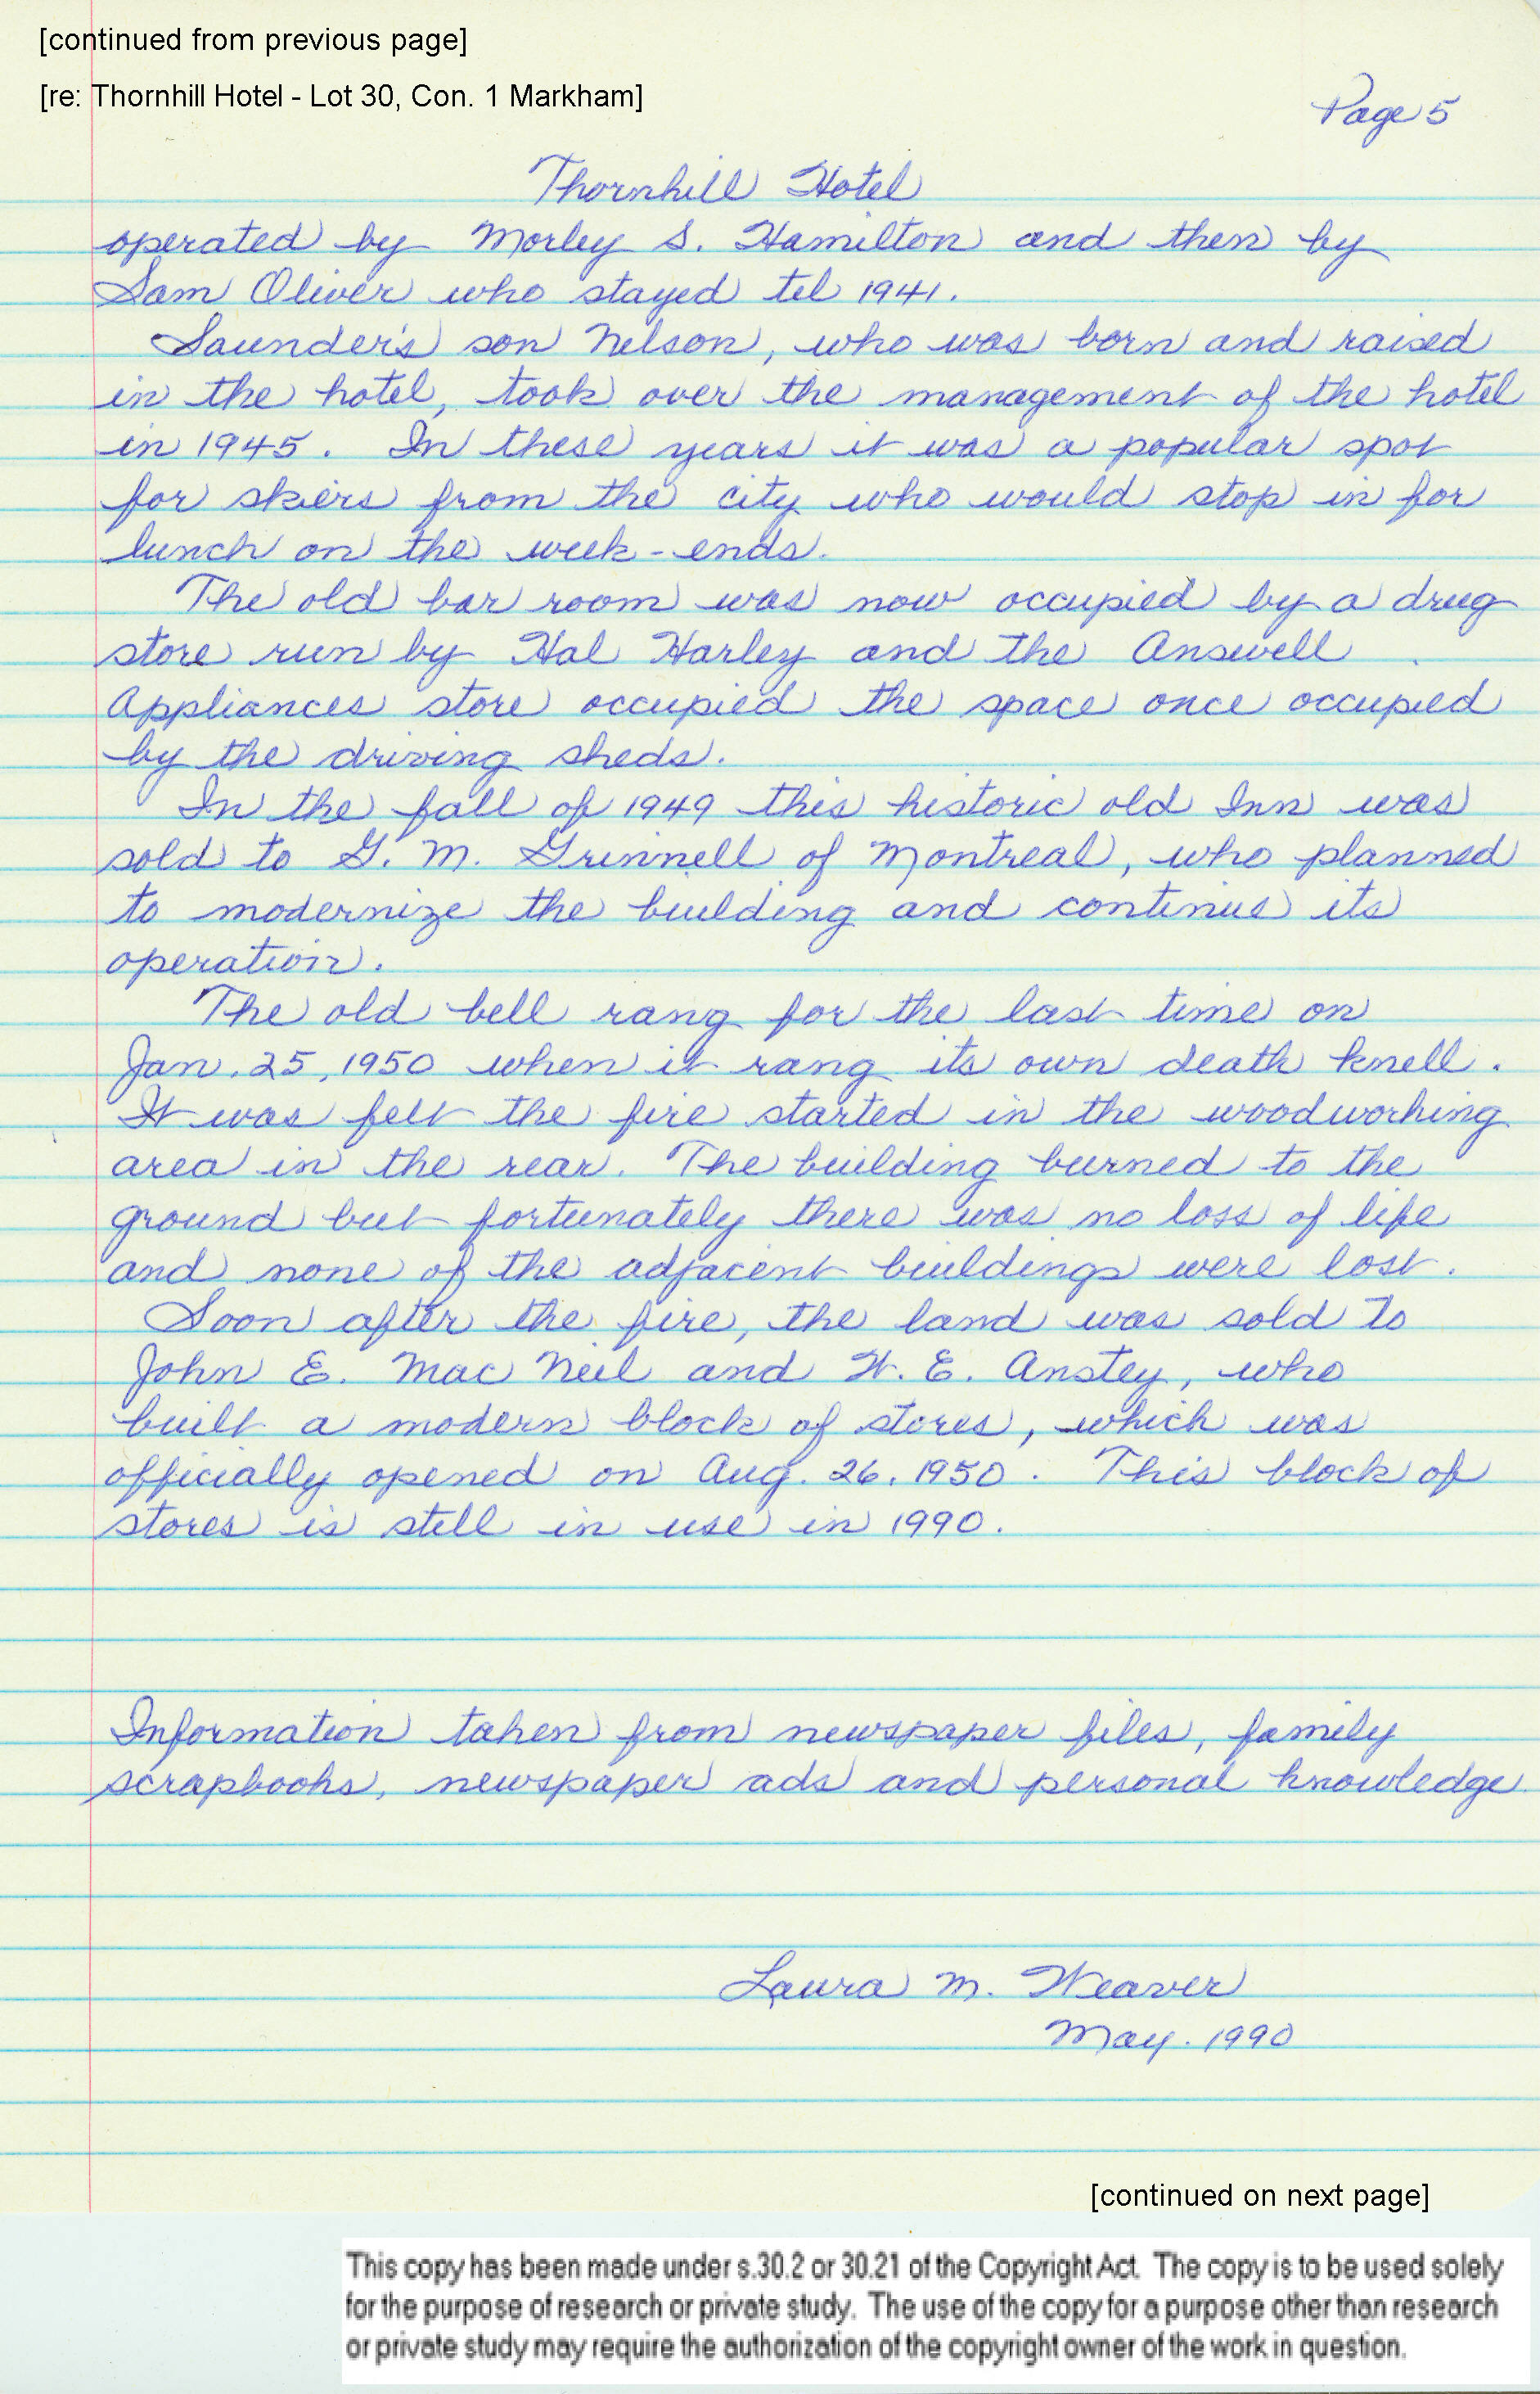 [continued from previous page]
[re: Thornhill Hotel - Lot 30, Con. 1 Markham]
Page 5
Thornhill Hotel
operated by Morley S. Hamilton and then by
Sam Oliver who stayed til 1941.
Saunder's son Nelson, who was born and raised
in the hotel, took over the management of the hotel
in 1945. In these years it was a popular spot
for skiers from the city who would stop in for
lunch on the week-ends.
The old bar room was now occupied by a drug
store run by Hal Harley and the Answell
Appliances store occupied the space once occupied
by the driving sheds.
In the fall of 1949 this historic old Inn was
sold to G. M. Grinnell of Montreal, who planned
to modernize the building and continue its
operation.
The old bell rang for the last time on
Jan. 25, 1950 when it rang its own death knell.
It was felt the fire started in the woodworking
area in the rear. The building burned to the
ground but fortunately there was no loss of life
and none of the adjacent buildings were lost.
Soon after the fire, the land was sold to
John E. Mac Neil and W. E. Anstey, who
built a modern block of stores, which was
officially opened on Aug. 26, 1950. This block of
stores is still in use in 1990.
Information taken from newspaper files, family
scrapbooks, newspaper ads and personal knowledge
Laura M. Weaver
May. 1990
[continued on next page]
This copy has been made under s.30.2 or 30.21 of the Copyright Act. The copy is to be used solely
for the purpose of research or private study. The use of the copy for a purpose other than research
or private study may require the authorization of the copyright owner of the work in question.